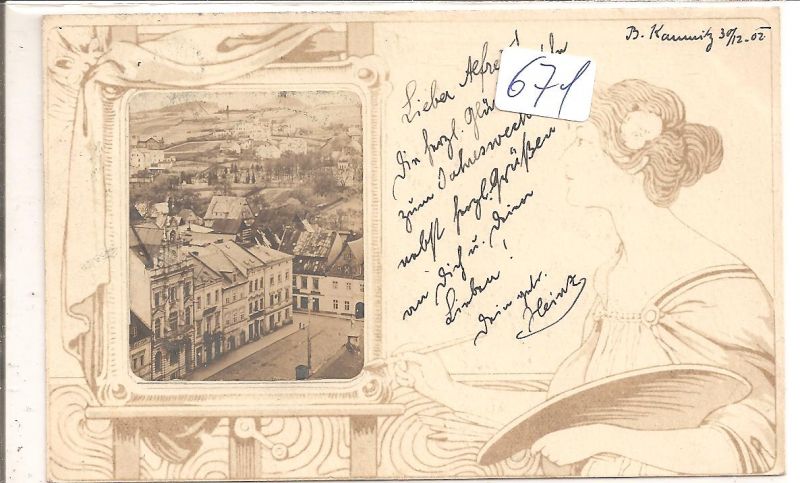 B. Kamnitz 30/12.02
Lieber Alfred!
Die herzl. Glü
zum Jahreswech
nebst herzl. Grüßen
an Dich u. Deine
Lieben!
Dein
Heinz
671